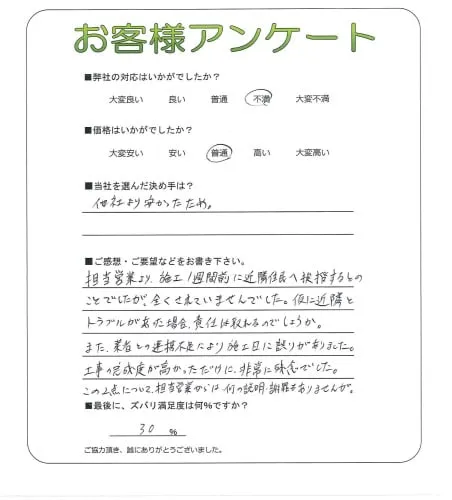 お客様アンケート
■弊社の対応はいかがでしたか?
大変良い 良い 普通 不満 大変不満
■価格はいかがでしたか?
大変安い 安い 普通 高い 大変高い
■当社を選んだ決め手は?
他社より安かったため。
■ご感想・ご要望などをお書き下さい。
担当営業より、施工1週間前に近隣住民へ挨拶するとの
ことでしたが、全くされていませんでした。仮に近隣と
トラブルがあった場合、責任は取れるのでしょうか。
また、業者との連携不足により施工日に誤りがありました。
工事の完成度が高かっただけに、非常に残念でした。
この2点について、担当営業からは何の説明・謝罪もありませんが。
■最後に、ズバリ満足度は何%ですか?
30 %
ご協力頂き、誠にありがとうございました。